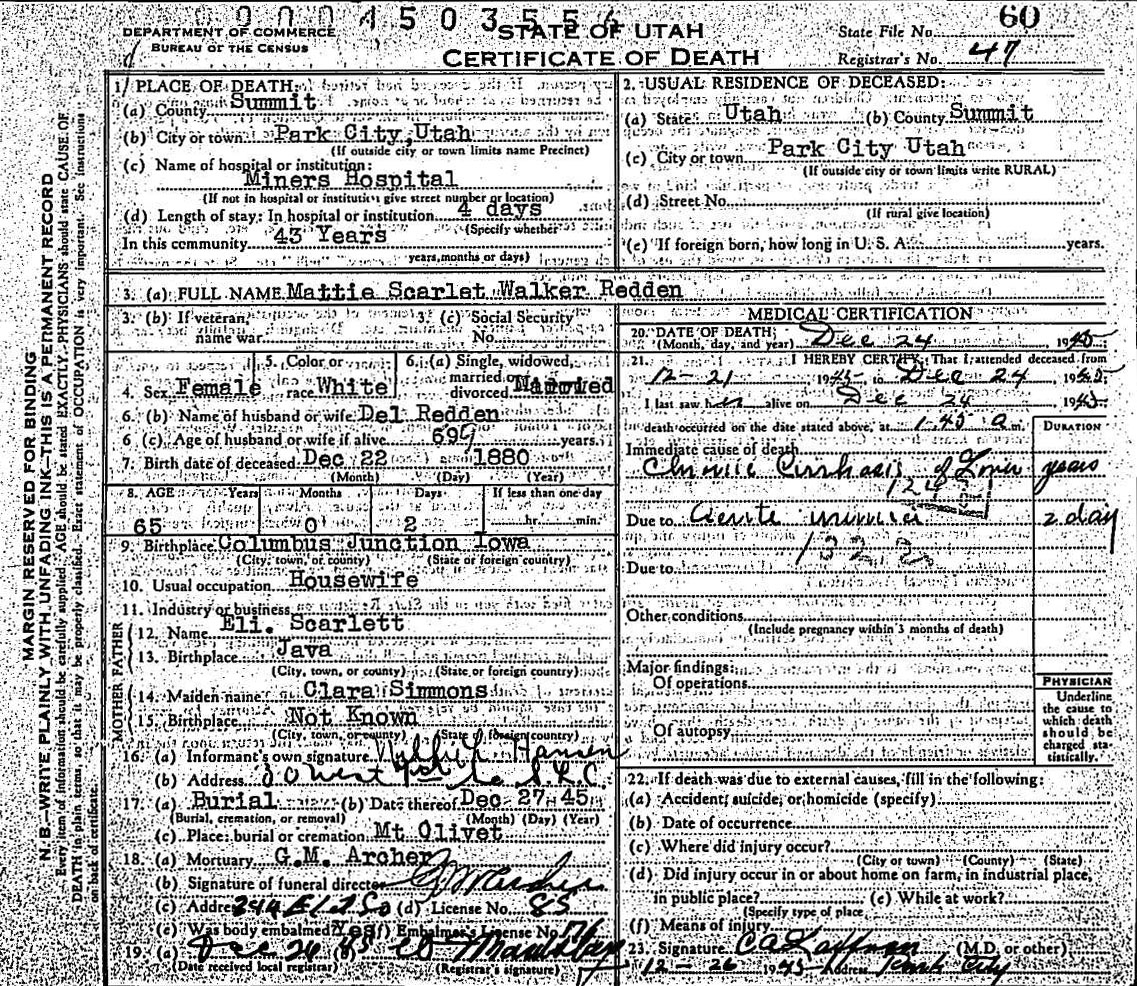 0004503556
60
DEPARTMENT OF COMMERCE
BUREAU OF THE CENSUS
STATE OF UTAH
CERTIFICATE OF DEATH
State File No.
Registrar's No. 47
MARGIN RESERVED FOR BINDING
N. B.—WRITE PLAINLY WITH UNFADING INK—THIS IS A PERMANENT RECORD
Every item of information should be carefully supplied. AGE should be stated EXACTLY. PHYSICIANS should state CAUSE OF
DEATH in plain terms, so that it may be properly classified. Exact statement of OCCUPATION is very important. See instructions
on back of certificate.
1. PLACE OF DEATH:
(a) County Summit
(b) City or town Park City, Utah
(If outside city or town limits name Precinct)
(c) Name of hospital or institution:
Miners Hospital
(If not in hospital or institution give street number or location)
(d) Length of stay: In hospital or institution 4 days
(Specify whether
In this community 43 Years
years, months or days)
2. USUAL RESIDENCE OF DECEASED:
(a) State Utah (b) County Summit
(c) City or town Park City Utah
(If outside city or town limits write RURAL)
(d) Street No.
(If rural give location)
(e) If foreign born, how long in U. S. A. years.
3. (a) FULL NAME Mattie Scarlet Walker Redden
3. (b) If veteran, name war
3. (c) Social Security No.
4. Sex Female
5. Color or race White
6. (a) Single, widowed, married or divorced Married
6. (b) Name of husband or wife Del Redden
6 (c). Age of husband or wife if alive 69 years.
7. Birth date of deceased Dec 22 1880
(Month) (Day) (Year)
8. AGE Years Months Days If less than one day
65 0 2 hr. min.
9. Birthplace Columbus Junction Iowa
(City, town, or county) (State or foreign country)
10. Usual occupation Housewife
11. Industry or business
FATHER
12. Name Eli. Scarlett
13. Birthplace Java
(City, town, or county) (State or foreign country)
MOTHER
14. Maiden name Clara Simmons
15. Birthplace Not Known
(City, town, or county) (State or foreign country)
16. (a) Informant's own signature Hansen
(b) Address
17. (a) Burial (b) Date thereof Dec 27 45
(Burial, cremation, or removal) (Month) (Day) (Year)
(c) Place: burial or cremation Mt Olivet
18. (a) Mortuary G.M. Archer
(b) Signature of funeral director
(c) Address (d) License No. 85
(e) Was body embalmed Yes (f) Embalmer's License No.
19. (a) Dec 26 45 (b)
(Date received local registrar) (Registrar's signature)
MEDICAL CERTIFICATION
20. DATE OF DEATH: Dec 24, 1945
(Month, day, and year)
21. I HEREBY CERTIFY, That I attended deceased from
12-21, 1945 to Dec 24, 1945
I last saw her alive on Dec 24, 1945
death occurred on the date stated above, at 1:45 a m.
DURATION
Immediate cause of death
Chronic Cirrhosis of Liver years
124
Due to Acute 2 day
132.2
Due to
Other conditions
(Include pregnancy within 3 months of death)
Major findings:
Of operations
Of autopsy
PHYSICIAN
Underline
the cause to
which death
should be
charged sta-
tistically.
22. If death was due to external causes, fill in the following:
(a) Accident, suicide, or homicide (specify)
(b) Date of occurrence
(c) Where did injury occur?
(City or town) (County) (State)
(d) Did injury occur in or about home on farm, in industrial place,
in public place? (e) While at work?
(Specify type of place
(f) Means of injury
23. Signature (M.D. or other)
12-26 1945 Address Park City